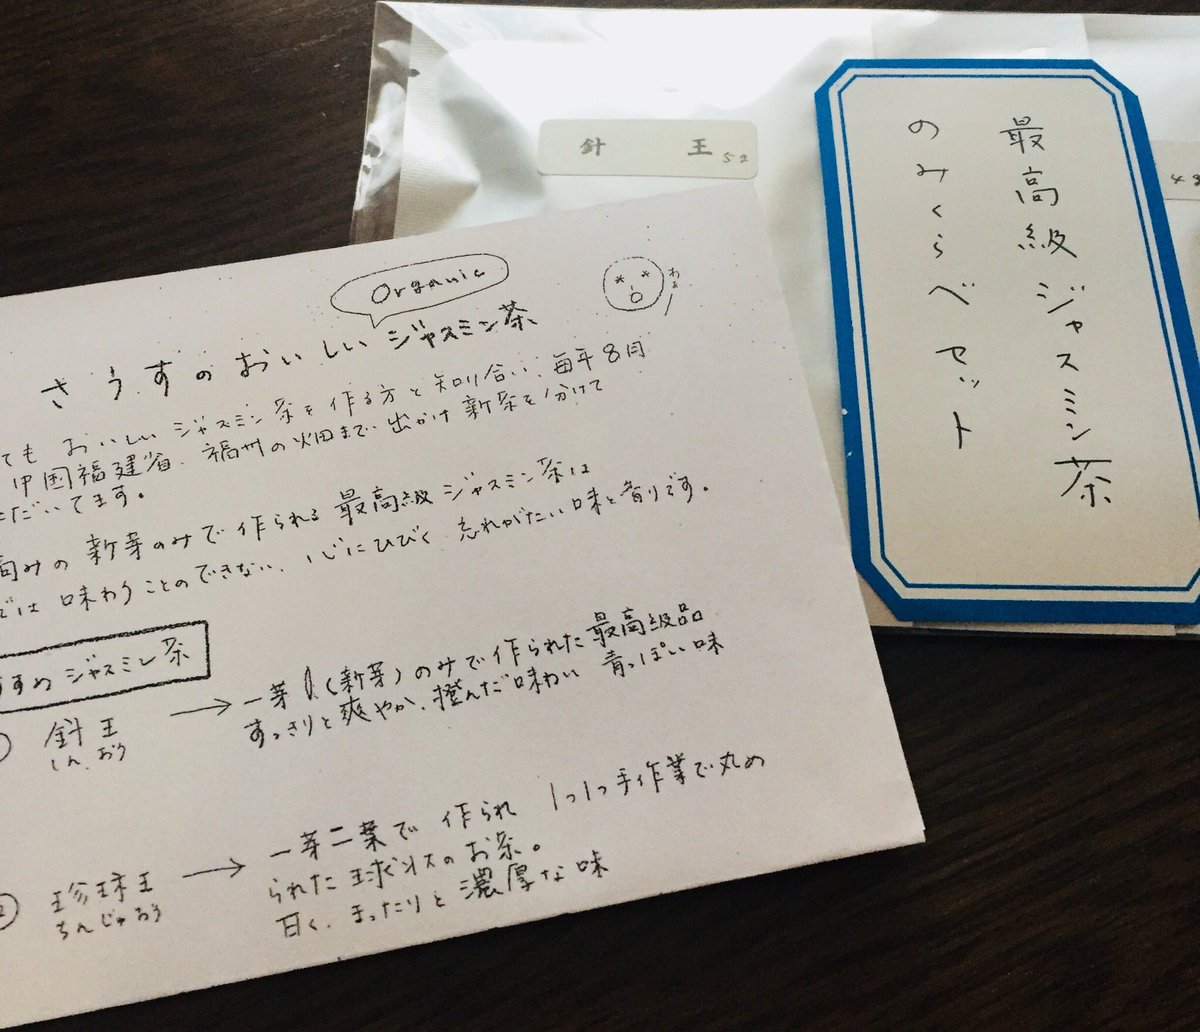 針 王 52
最高級ジャスミン茶
のみくらべセット
48
Organic
わぁ
さうすのおいしいジャスミン茶
てもおいしいジャスミン茶を作る方と知り合い、毎年8月
中国福建省、福州の畑まで出かけ新茶を分けて
ただいてます。
摘みの新芽のみで作られる最高級ジャスミン茶は
では味わうことのできない、心にひびく忘れがたい味と香りです。
すすめジャスミン茶
針王 → 一芽(新芽)のみで作られた最高級品
しんおう すっきりと爽やか、澄んだ味わい 青っぽい味
② 珍珠王 → 一芽二葉で作られ 1つ1つ手作業で丸め
ちんじゅおう られた球状のお茶。
甘く、まったりと濃厚な味